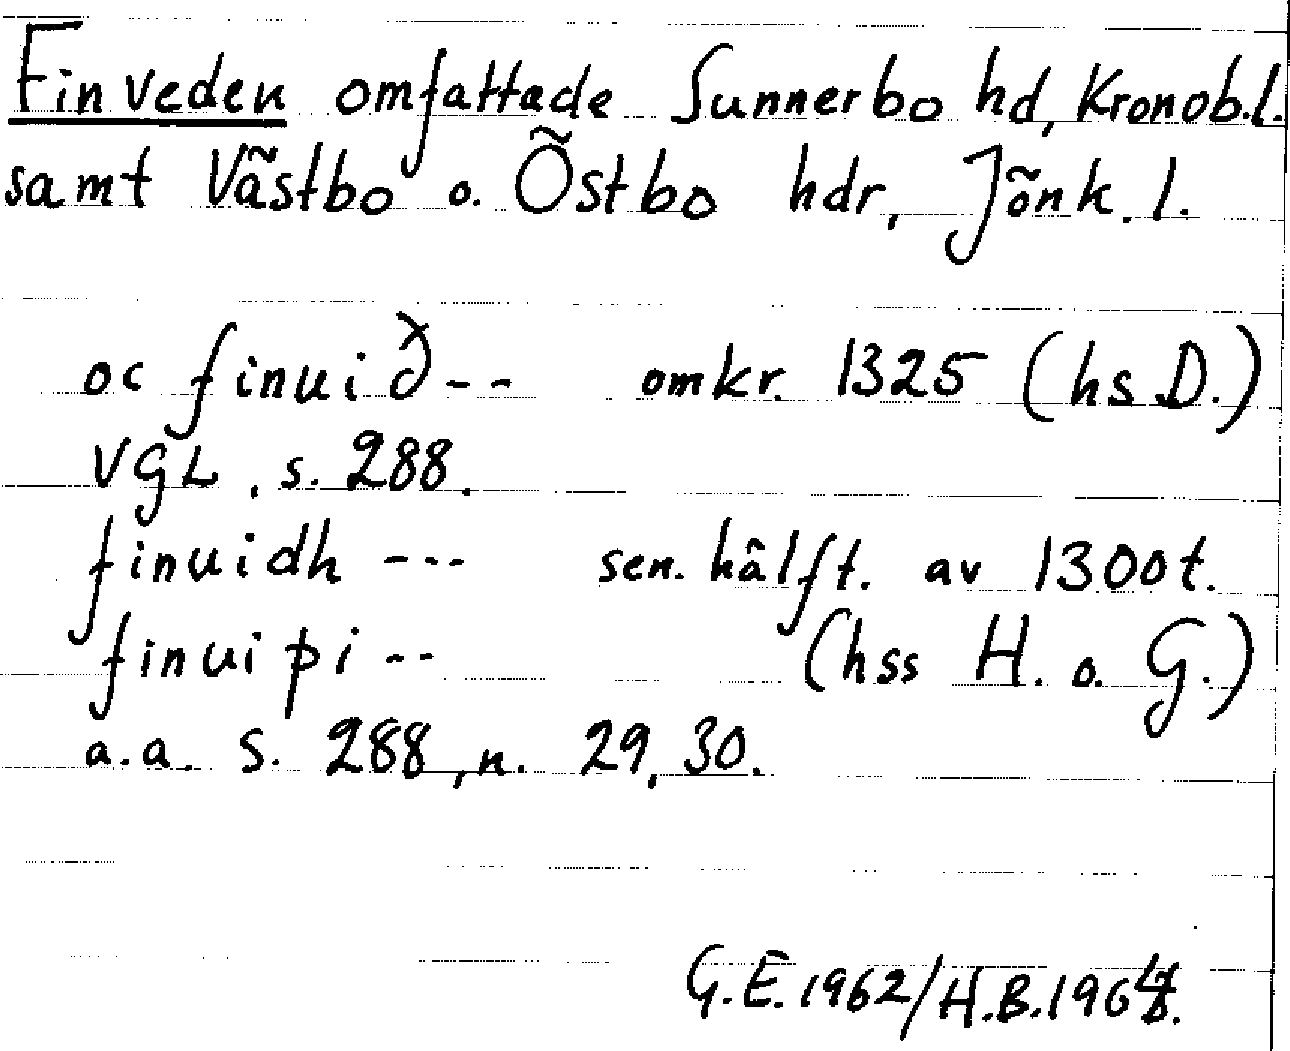 Finveden omfattade Sunnerbo hd, Kronob.l.
samt Västbo o. Östbo hdr, Jönk.l.
oc finuið-- omkr. 1325 (hs D.)
VGL, s. 288.
finuidh --- sen. hälft. av 1300t.
finuiþi -- (hss H. o. G.)
a.a. s. 288, n. 29, 30.
G.E. 1962/H.B.